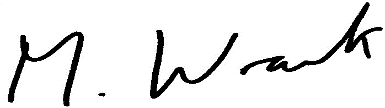 M. Wrank